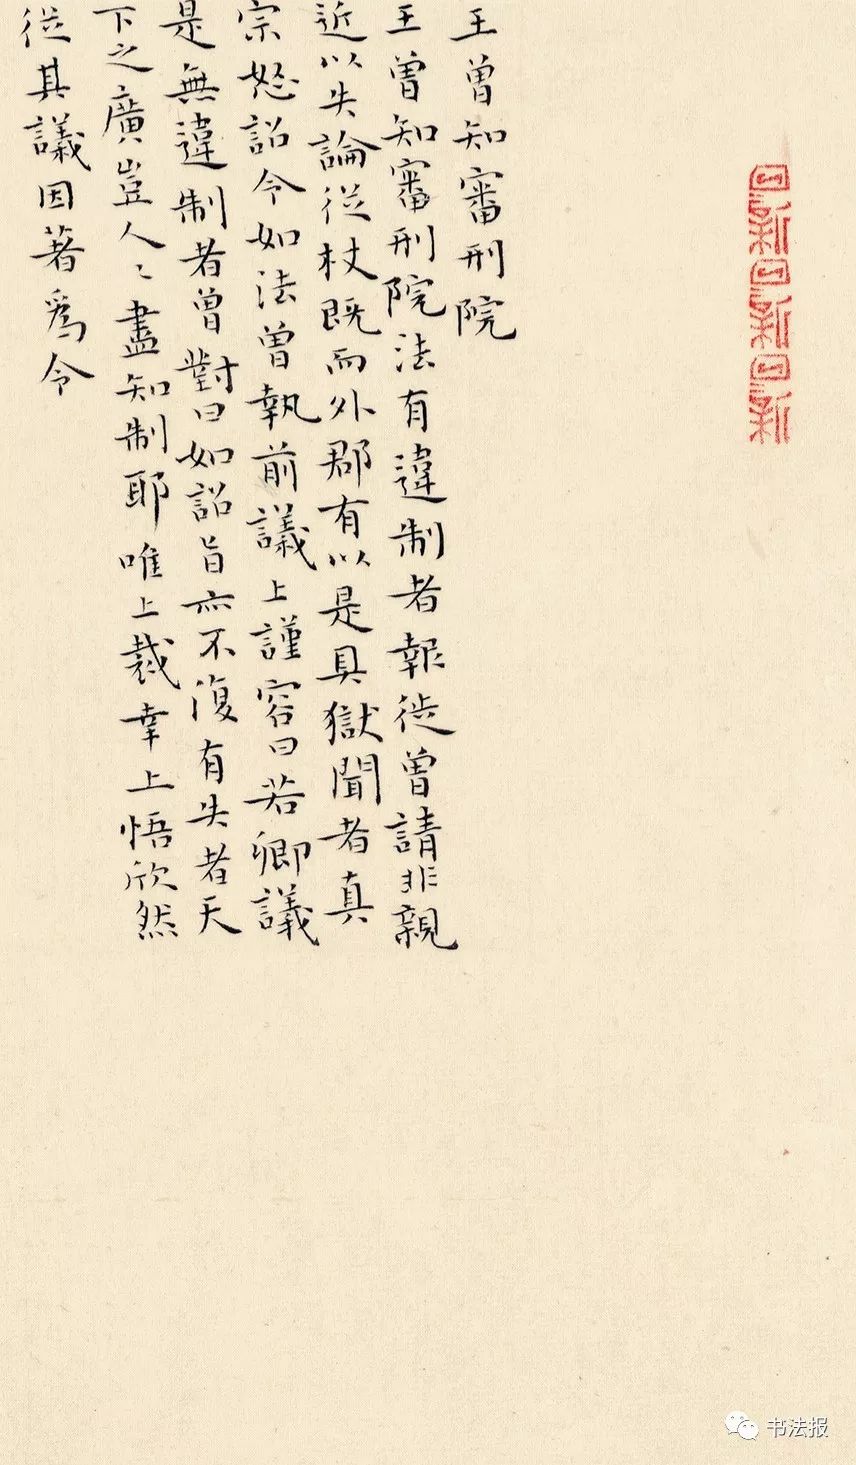 王曾知審刑院
王曾知審刑院法有違制者報徙曾請非親
近以失論從杖既而外郡有以是具獄聞者真
宗怒詔令如法曾執前議上謹容曰若卿議
是無違制者曾對曰如詔旨亦不復有失者天
下之廣豈人〻盡知制耶唯上裁幸上悟欣然
從其議因著爲令
书法报